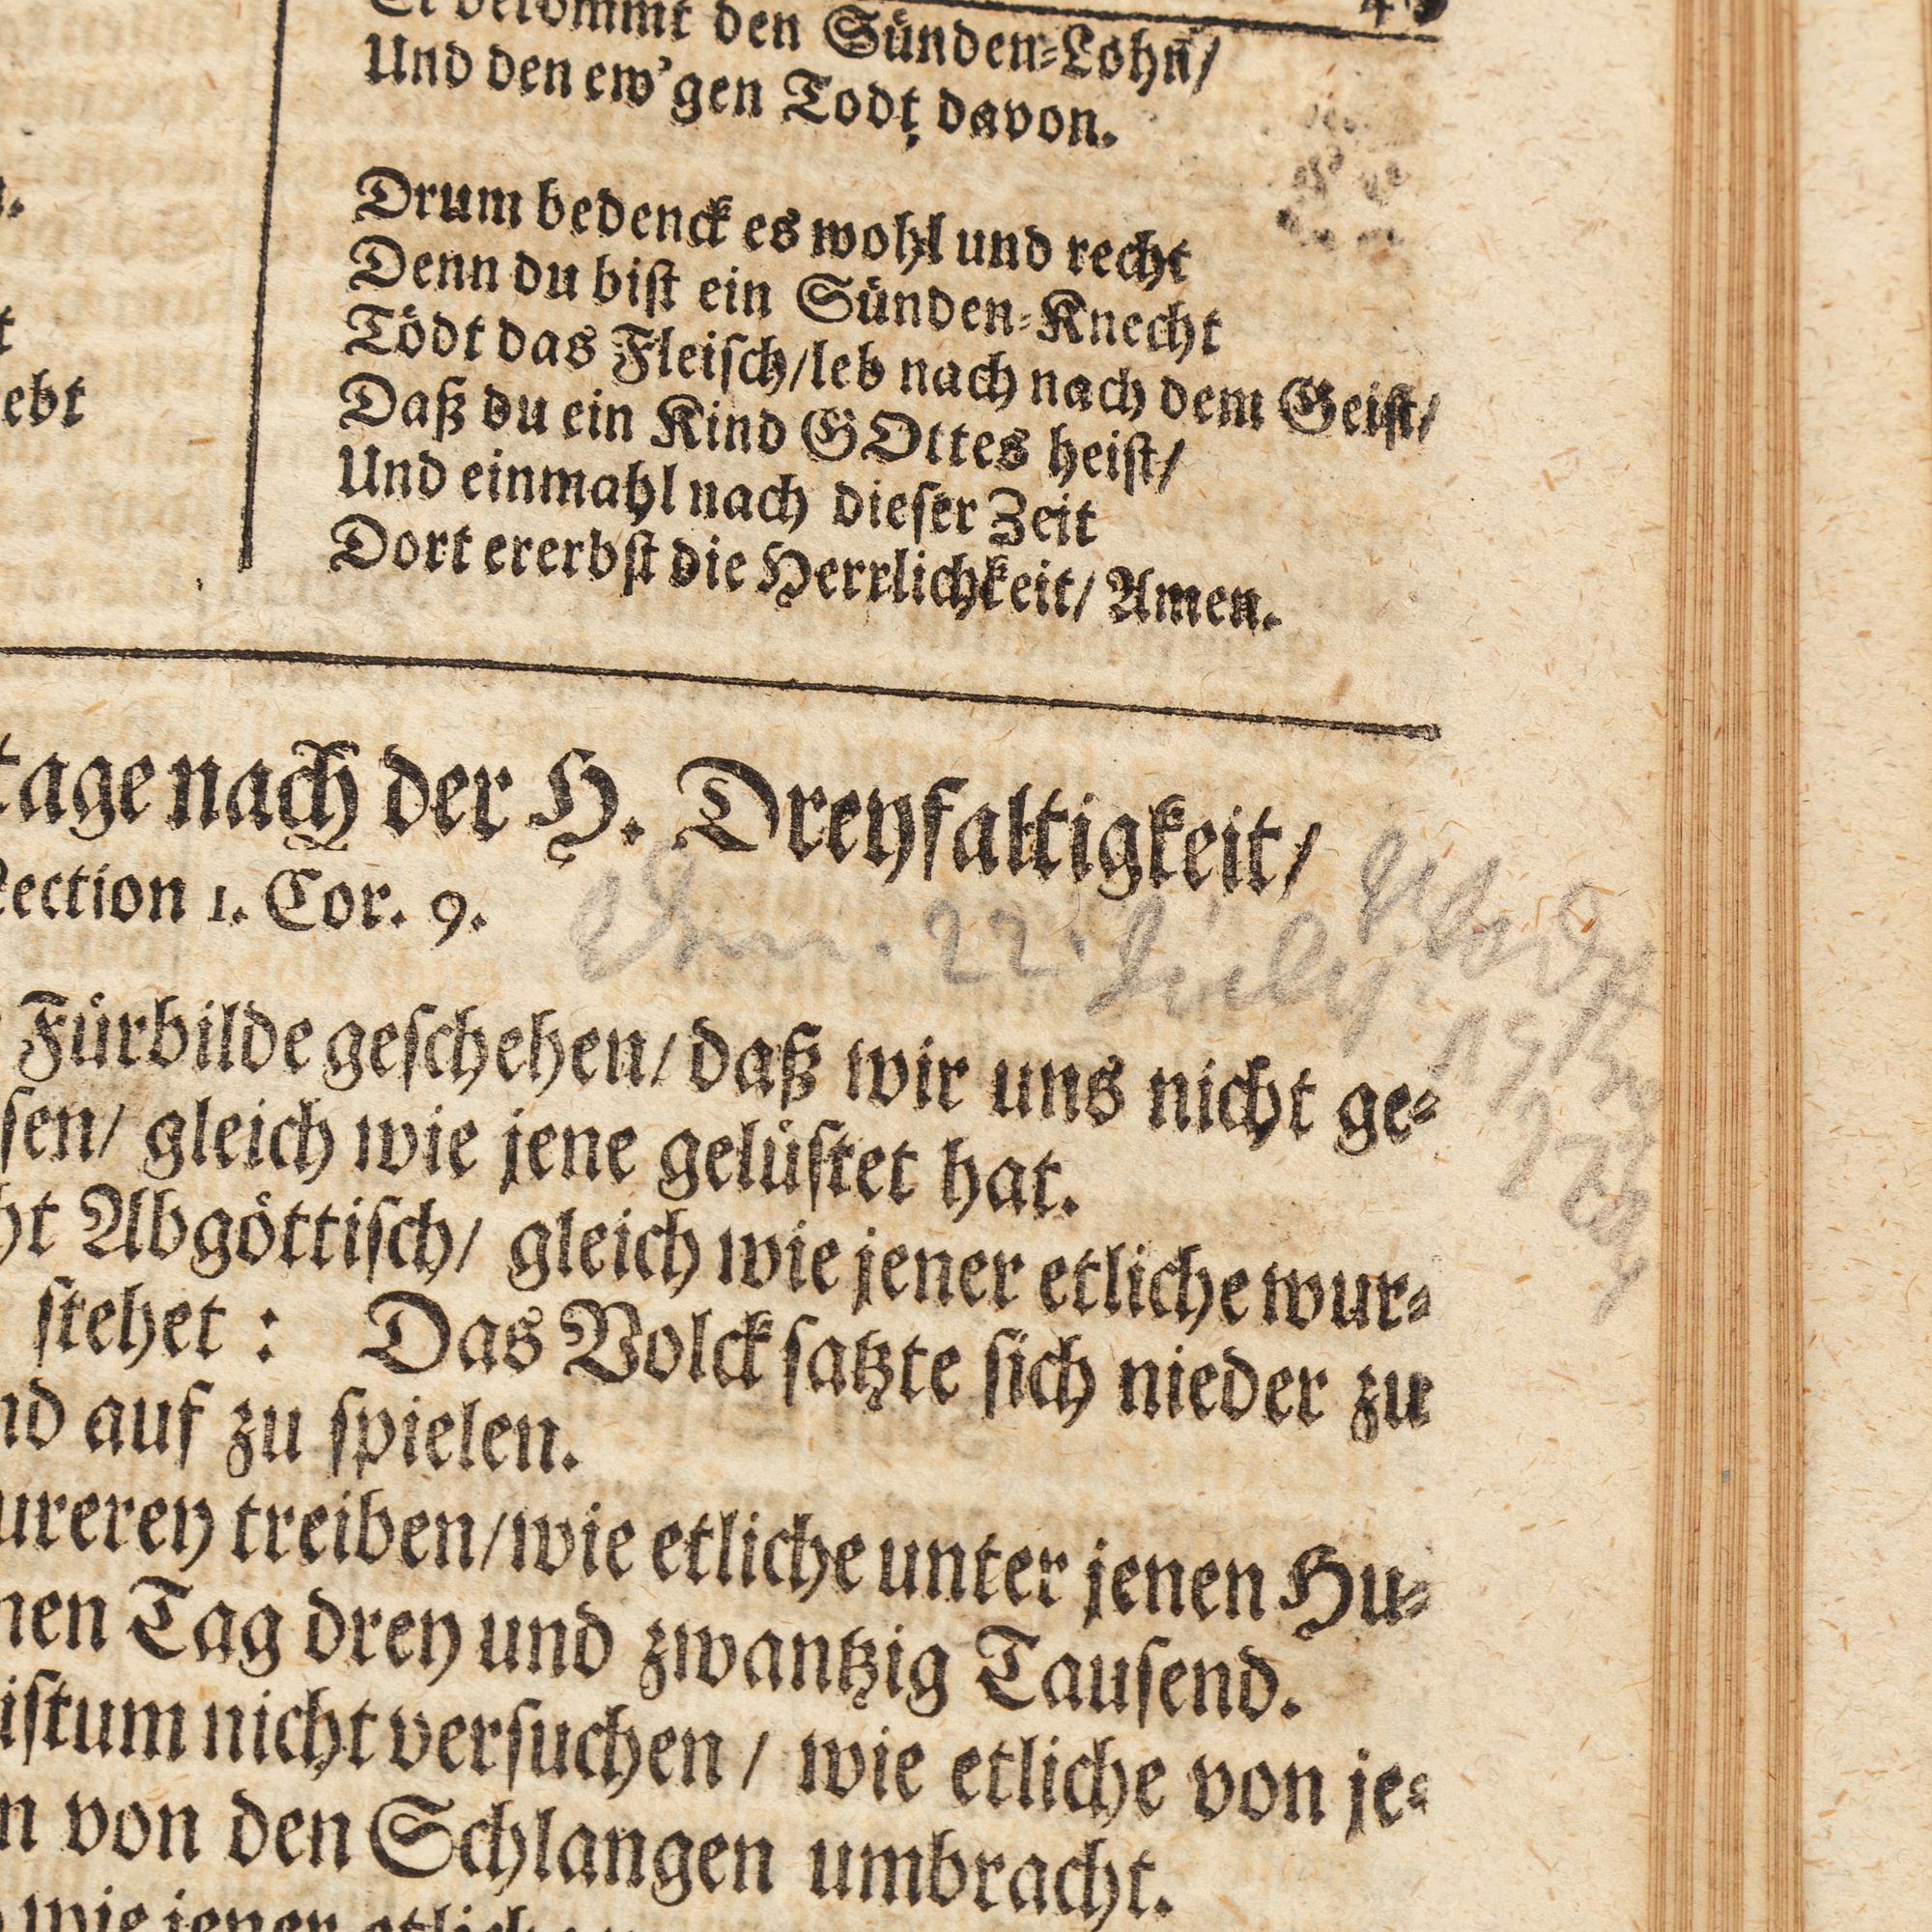 n.
t
ebt
bekommt den Sünden-Lohn/
Und den ew'gen Todt davon.
Drum bedenck es wohl und recht
Denn du bist ein Sünden-Knecht
Tödt das Fleisch/leb nach nach dem Geist/
Daß du ein Kind GOttes heist/
Und einmahl nach dieser Zeit
Dort ererbst die Herrlichkeit/ Amen.
tage nach der H. Dreyfaltigkeit/
Lection 1. Cor. 9.
22. July
Fürbilde geschehen/ daß wir uns nicht ge-
sen/ gleich wie jene gelüstet hat.
ht Abgöttisch/ gleich wie jener etliche wur-
stehet : Das Volck satzte sich nieder zu
nd auf zu spielen.
urerey treiben/wie etliche unter jenen Hu-
nen Tag drey und zwantzig Tausend.
istum nicht versuchen / wie etliche von je-
n von den Schlangen umbracht.
wie jener